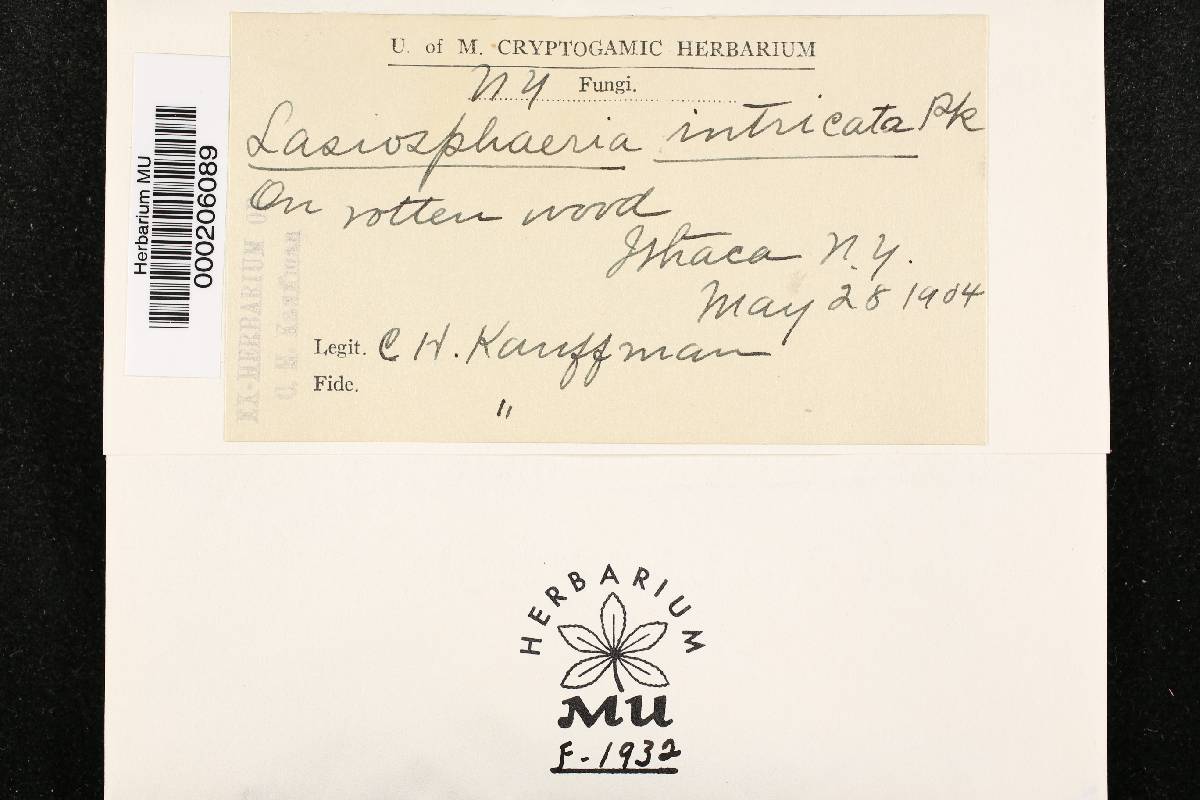 U. of M. CRYPTOGAMIC HERBARIUM
NY Fungi.
Lasiosphaeria intricata Pk
On rotten wood
Ithaca N.Y.
May 28 1904
Legit. C H. Kauffman
Fide.
"
Herbarium MU
000206089
EX-HERBARIUM OF
C. H. Kauffman
HERBARIUM
MU
F-1932